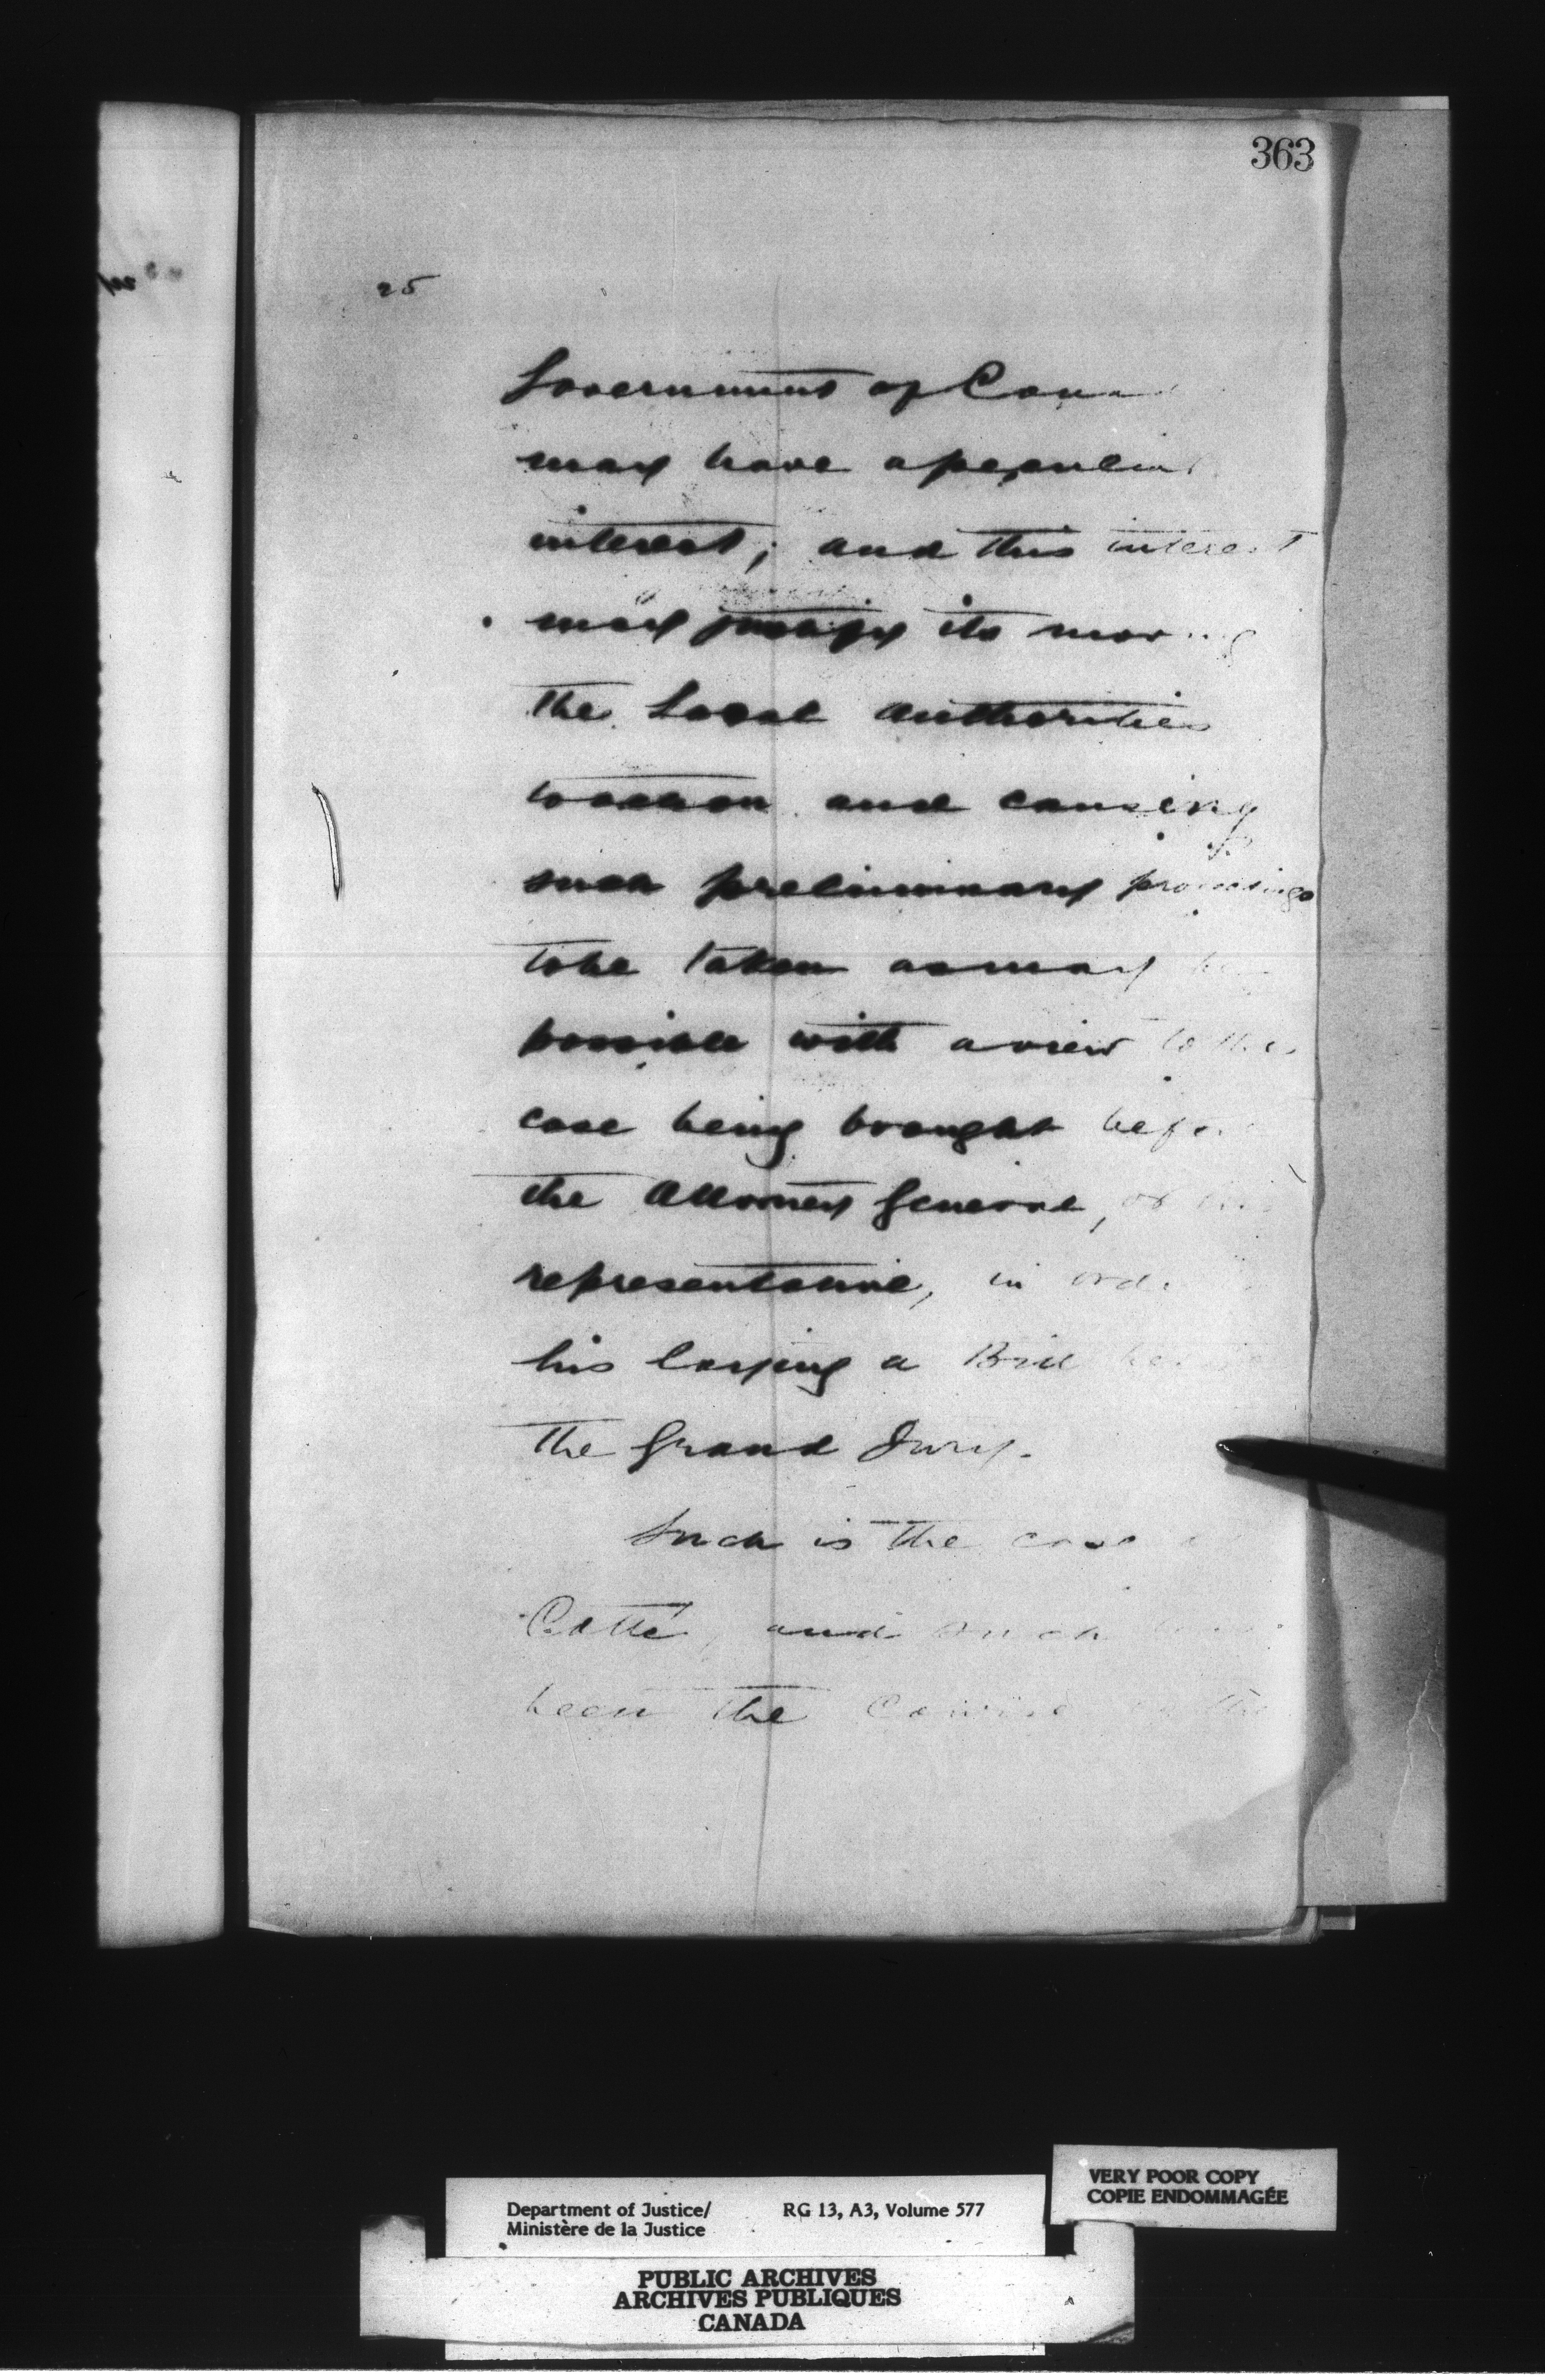 363
25
Government of Cana
may have a peculiar
interest; and this interest
may justify its moving
the Local authorities
to action and causing
such preliminary proceedings
to be taken as may be
possible with a view to the
case being brought before
the Attorney General, or his
representative, in ord
his laying a Bill before
the Grand Jury.
Such is the case
Cotté, and such
been the the
Department of Justice/
Ministère de la Justice
RG 13, A3, Volume 577
VERY POOR COPY
COPIE ENDOMMAGÉE
PUBLIC ARCHIVES
ARCHIVES PUBLIQUES
CANADA